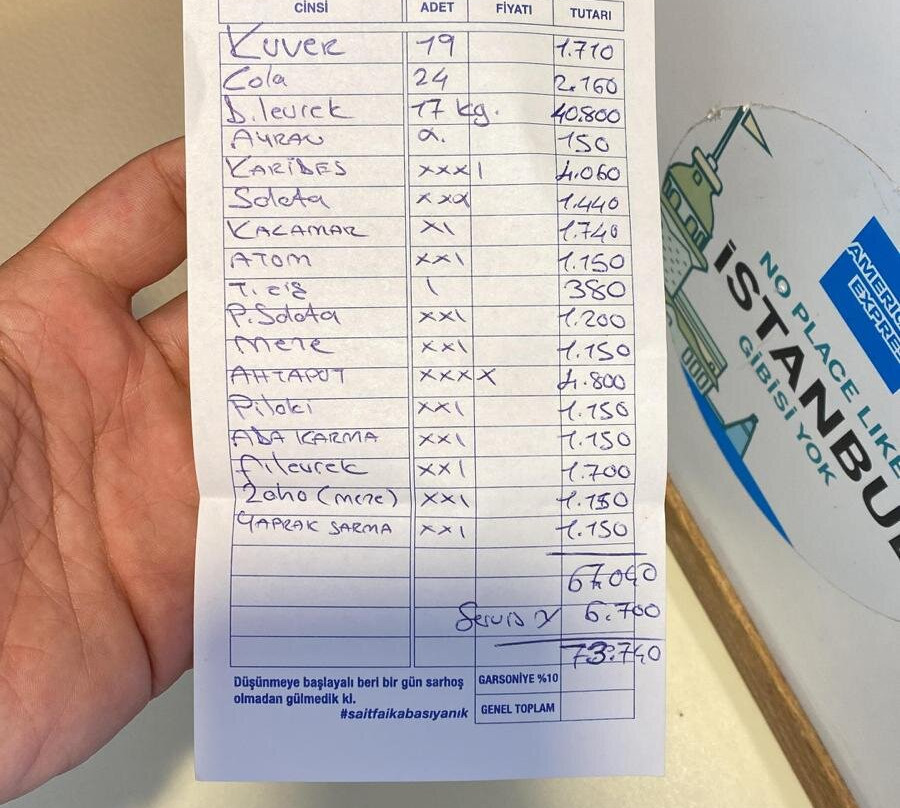 CİNSİ ADET FİYATI TUTARI
Kuver 19 1.710
Cola 24 2.160
D.levrek 17 kg. 40.800
AYRAN 150
KARİDES xxx| 4.060
Salata xxx 1.440
KALAMAR x| 1.740
ATOM xx| 1.150
380
P.Salata xx| 1.200
meze xx| 1.150
AHTAPOT xxxx 4.800
Pilaki xx| 1.150
ADA KARMA xx| 1.150
f.levrek xx| 1.700
(meze) xx| 1.150
YAPRAK SARMA xx| 1.150
67.040
Servis 6.700
73.740
Düşünmeye başlayalı beri bir gün sarhoş
olmadan gülmedik ki.
#saitfaikabasıyanık
GARSONİYE %10
GENEL TOPLAM
NO PLACE LIKE
İSTANBU
GİBİSİ YOK
AMERIC
EXPRE